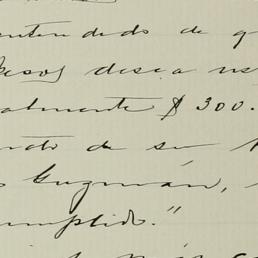 entendido de q
pesos desea us
almente $300.
nto de su
Guzmán,
umplido."